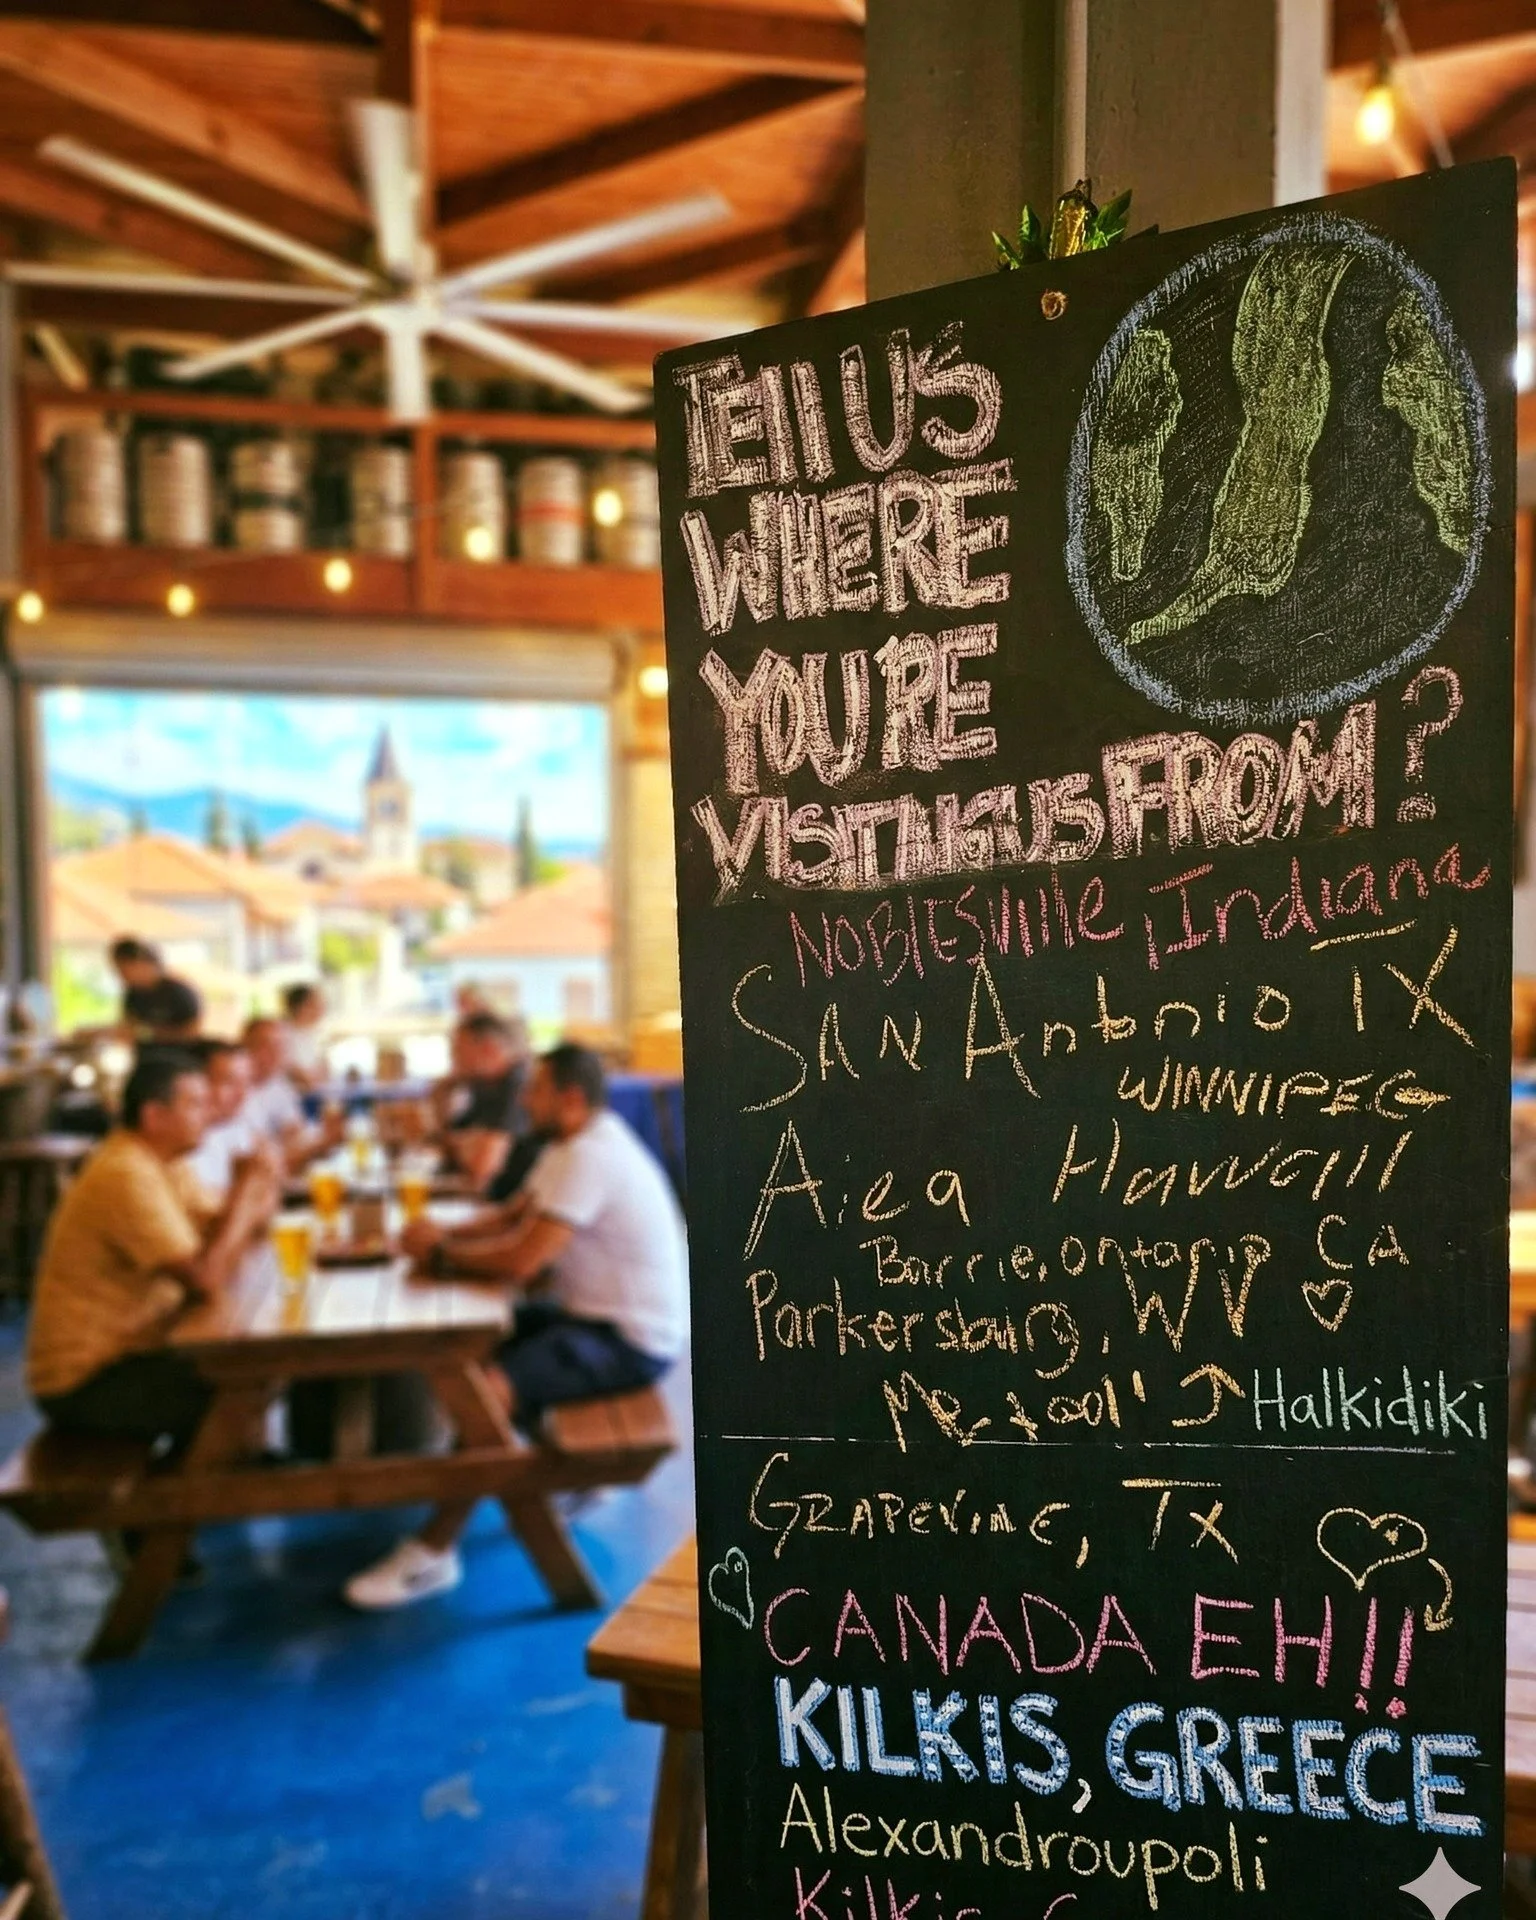 TEll US
WHERE
YOU'RE
VISITINGUS FROM?
NOBlESVIllE, Indiana
SAN Antonio TX
WINNIPEG
Aiea Hawaii
Barrie, Ontario CA
Parkersburg, WV
Halkidiki
GRAPEVINE, Tx
CANADA EH!!
KILKIS, GREECE
Alexandroupoli
Kilkis